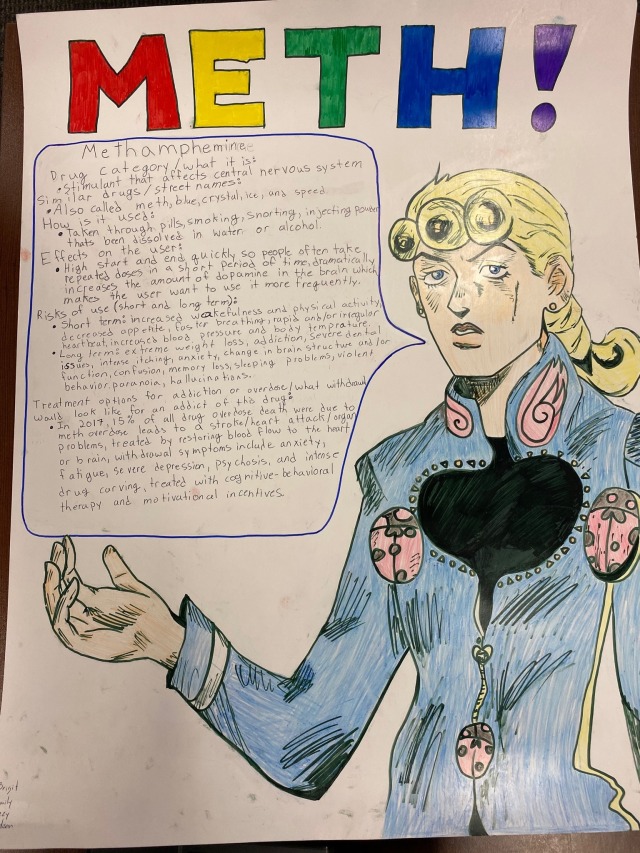 METH!
Methamphemine
Drug category/what it is:
• Stimulant that affects central nervous system
Similar drugs/street names:
• Also called meth, blue, crystal, ice, and speed
How is it used:
• Taken through pills, smoking, snorting, injecting powder
thats been dissolved in water or alcohol.
Effects on the user:
• High start and end quickly so people often take
repeated doses in a short period of time, dramatically
increases the amount of dopamine in the brain which
makes the user want to use it more frequently.
Risks of use (short and long term):
• Short term: increased wakefulness and physical activity,
decreased appetite, faster breathing, rapid and/or irregular
heartbeat, increases blood pressure and body temprature
• Long term: extreme weight loss, addiction, severe dental
issues, intense itching, anxiety, change in brain structure and/or
function, confusion, memory loss, sleeping problems, violent
behavior, paranoia, hallucinations.
Treatment options for addiction or overdose/what withdrawl
would look like for an addict of this drug:
• In 2017, 15% of all drug overdose death were due to
meth overdose leads to a stroke/heart attack/organ
problems, treated by restoring blood flow to the heart
or brain, withdrawal symptoms include anxiety,
fatigue, severe depression, psychosis, and intense
drug carving, treated with cognitive-behavioral
therapy and motivational incentives.